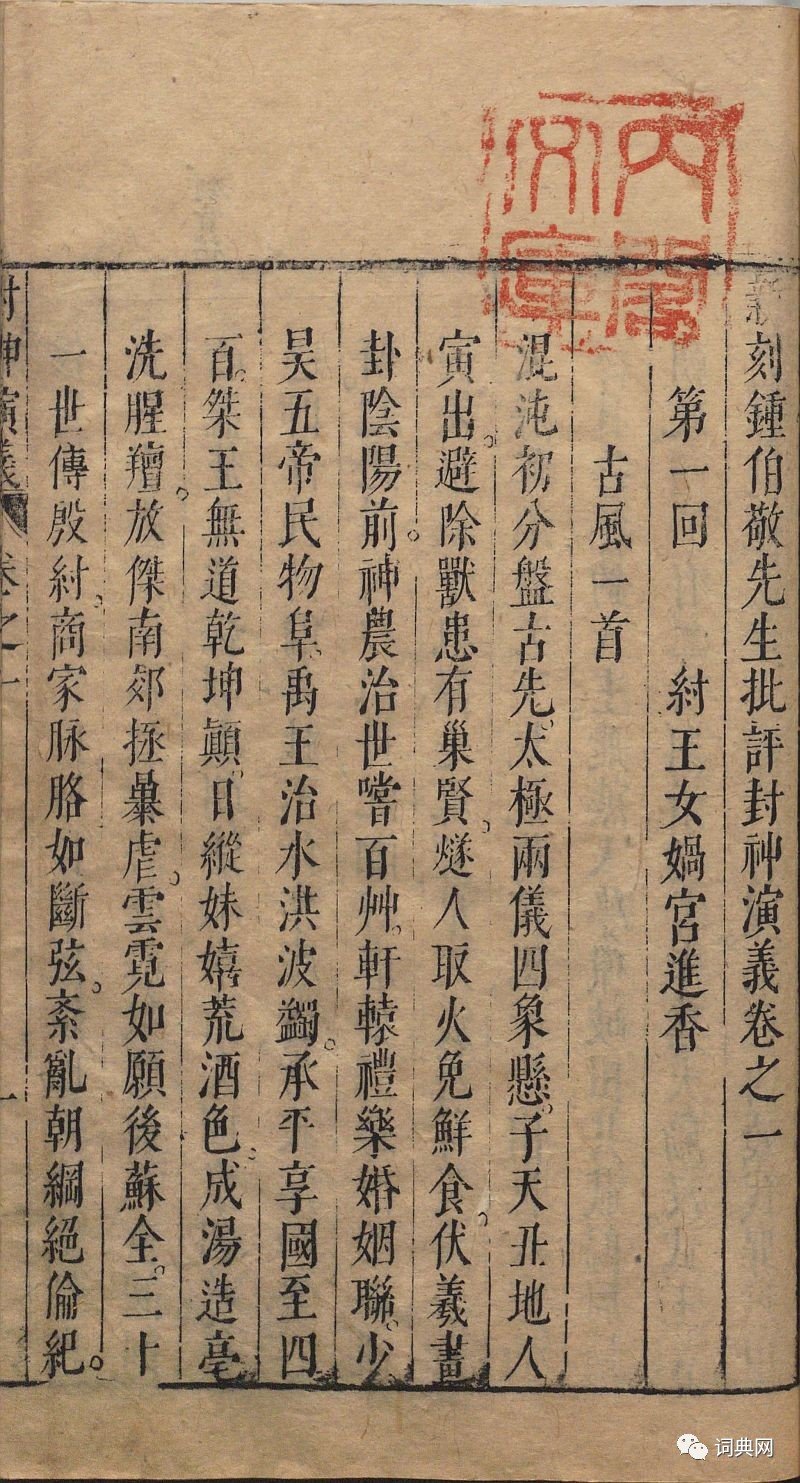 新刻鍾伯敬先生批評封神演義卷之一
第一回 紂王女媧宮進香
古風一首
混沌初分盤古先太極兩儀四象懸子天丑地人
寅出避除獸患有巢賢燧人取火免鮮食伏羲畫
卦陰陽前神農治世嘗百艸軒轅禮樂婚姻聯少
昊五帝民物阜禹王治水洪波蠲承平享國至四
百桀王無道乾坤顛日縱妹嬉荒酒色成湯造亳
洗腥羶放傑南郊拯暴虐雲霓如願後蘇全三十
一世傳殷紂商家脉胳如斷弦紊亂朝綱絕倫紀
封神演義 卷之一 一
內閣文庫
词典网